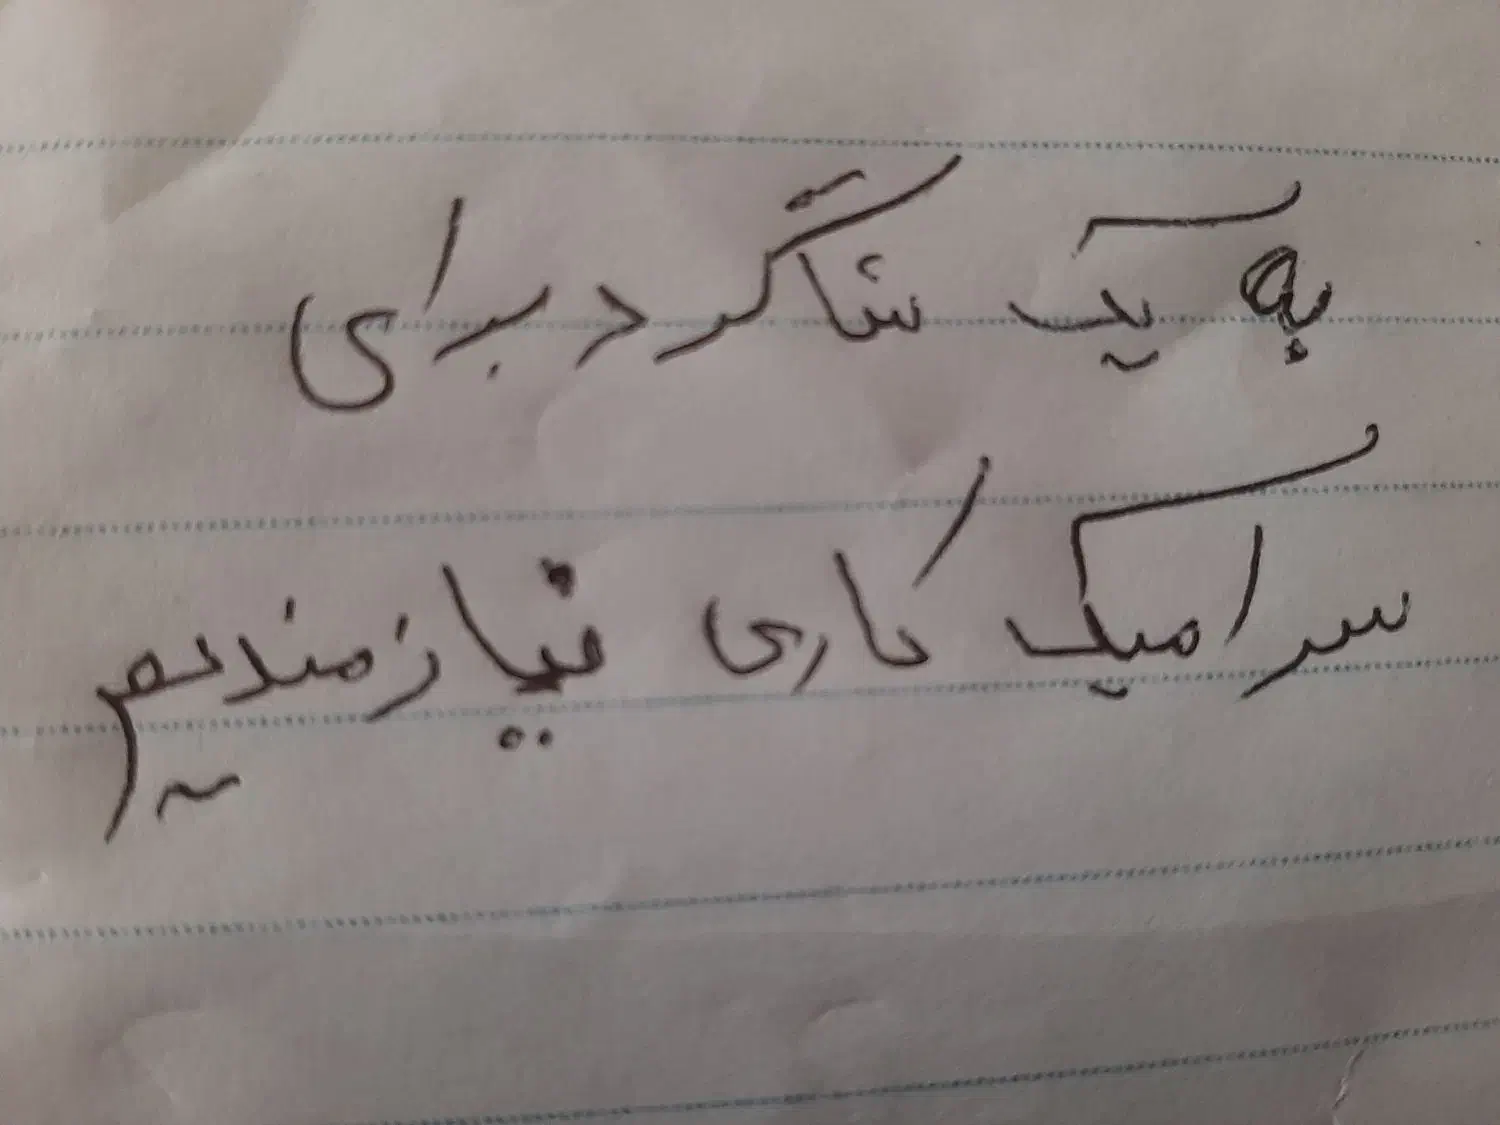 به یک شاگرد برای
سرامیک کاری نیازمندیم